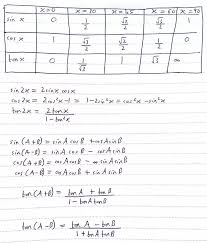 x=0 x=30 x=45 x=60 x=90
sin x 0 1/2 √2/2 √3/2 1
cos x 1 √3/2 √2/2 1/2 0
tan x 0 1 √3 ∞
sin 2x = 2sinx cosx
cos 2x = 2cos²x-1 = 1-2sin²x = cos²x - sin²x
tan 2x = 2tanx / 1-tan²x
sin (A+B) = sinA cosB + cosA sinB
sin(A-B) = sinA cosB - cosA sinB
cos (A+B) = cosA cosB - sinA sinB
cos (A-B) = cosA cosB + sinA sinB
tan (A+B) = tanA + tanB / 1 - tanA tanB
tan (A-B) = tanA - tanB / 1 + tanA tanB